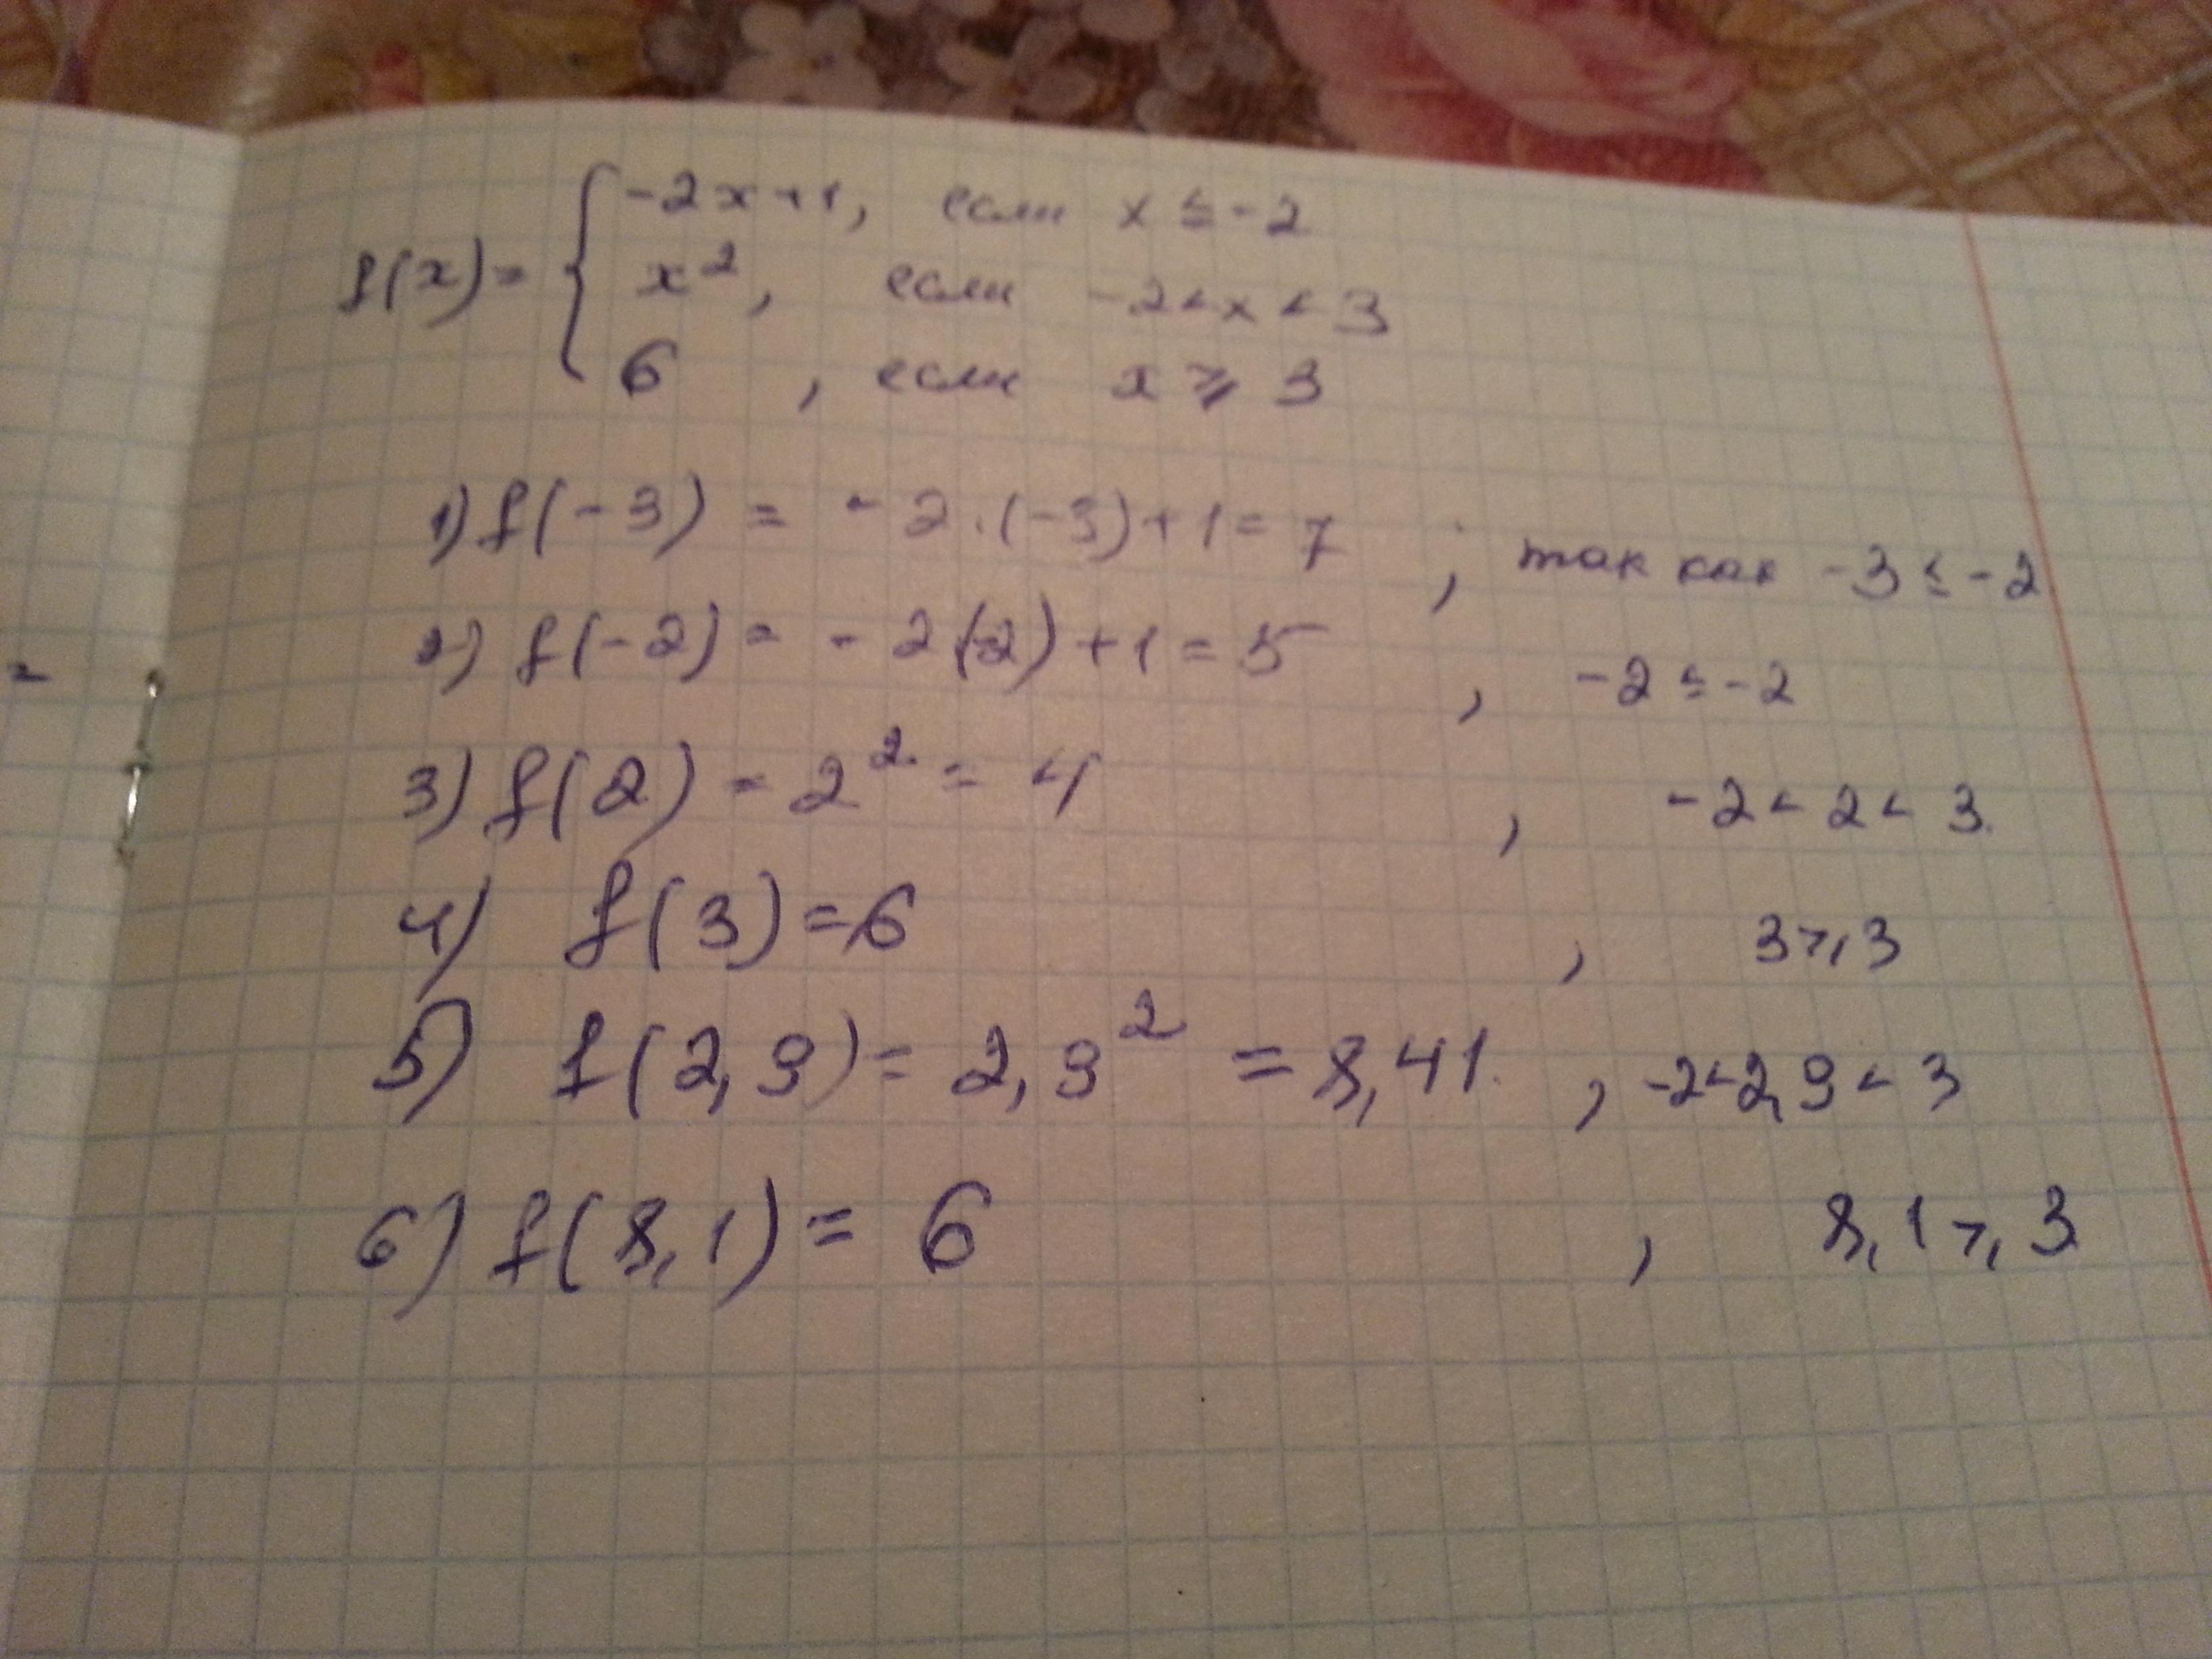 f(x) = { -2x+1, если x ≤ -2
x², если -2<x<3
6, если x ⩾ 3
1) f(-3) = -2·(-3)+1=7 ; так как -3 ≤ -2
2) f(-2) = -2(-2)+1=5 , -2 ≤ -2
3) f(2) = 2² = 4 , -2 < 2 < 3.
4) f(3)=6 , 3⩾3
5) f(2,9)= 2,9² = 8,41. , -2<2,9<3
6) f(8,1)= 6 , 8,1⩾3
=